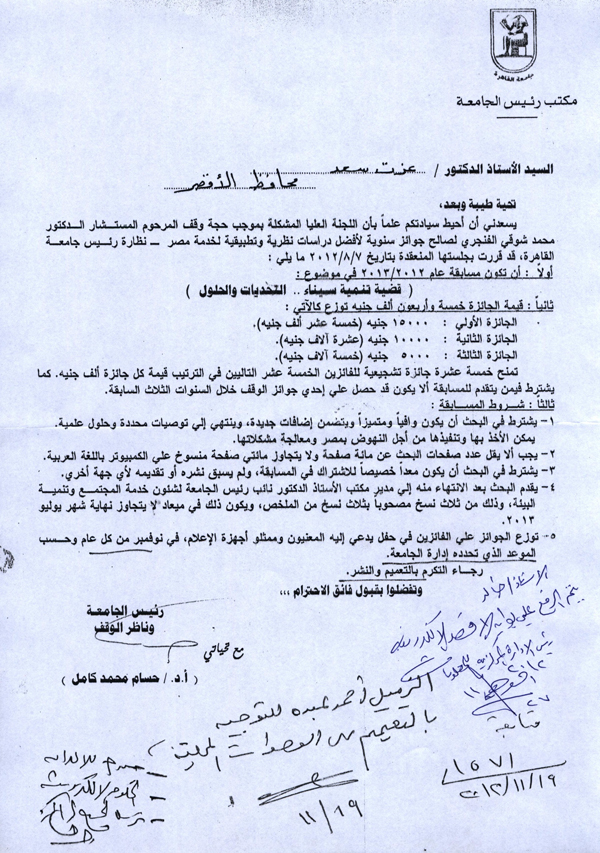 جامعة القاهرة
مكتب رئيس الجامعة
السيد الأستاذ الدكتور / عزت سعد
محافظ الأقصر
تحية طيبة وبعد،
يسعدني أن أحيط سيادتكم علماً بأن اللجنة العليا المشكلة بموجب حجة وقف المرحوم المستشار الدكتور
محمد شوقي الفنجري لصالح جوائز سنوية لأفضل دراسات نظرية وتطبيقية لخدمة مصر – نظارة رئيس جامعة
القاهرة، قد قررت بجلستها المنعقدة بتاريخ ٢٠١٢/٨/٧ ما يلي :
أولاً : أن تكون مسابقة عام ٢٠١٣/٢٠١٢ في موضوع :
( قضية تنمية سيناء .. التحديات والحلول )
ثانياً : قيمة الجائزة خمسة وأربعون ألف جنيه توزع كالآتي :
الجائزة الأولي : ١٥٠٠٠ جنيه (خمسة عشر ألف جنيه).
الجائزة الثانية : ١٠٠٠٠ جنيه (عشرة آلاف جنيه).
الجائزة الثالثة : ٥٠٠٠ جنيه (خمسة آلاف جنيه).
تمنح خمسة عشرة جائزة تشجيعية للفائزين الخمسة عشر التاليين في الترتيب قيمة كل جائزة ألف جنيه. كما
يشترط فيمن يتقدم للمسابقة ألا يكون قد حصل علي إحدي جوائز الوقف خلال السنوات الثلاث السابقة.
ثالثاً : شروط المسابقة :
١- يشترط في البحث أن يكون وافياً ومتميزاً ويتضمن إضافات جديدة، وينتهي إلي توصيات محددة وحلول علمية.
يمكن الأخذ بها وتنفيذها من أجل النهوض بمصر ومعالجة مشكلاتها.
٢- يجب ألا يقل عدد صفحات البحث عن مائة صفحة ولا يتجاوز مائتي صفحة منسوخ علي الكمبيوتر باللغة العربية.
٣- يشترط في البحث أن يكون معداً خصيصاً للاشتراك في المسابقة، ولم يسبق نشره أو تقديمه لأي جهة أخري.
٤- يقدم البحث بعد الانتهاء منه إلي مدير مكتب الأستاذ الدكتور نائب رئيس الجامعة لشئون خدمة المجتمع وتنمية
البيئة، وذلك من ثلاث نسخ مصحوباً بثلاث نسخ من الملخص، ويكون ذلك في ميعاد لا يتجاوز نهاية شهر يوليو
٢٠١٣.
٥- توزع الجوائز علي الفائزين في حفل يدعي إليه المعنيون وممثلو أجهزة الإعلام، في نوفمبر من كل عام وحسب
الموعد الذي تحدده إدارة الجامعة.
رجاء التكرم بالتعميم والنشر.
وتفضلوا بقبول فائق الاحترام ،،،
رئيس الجامعة
وناظر الوقف
مع تحياتي
( أ.د./ حسام محمد كامل )
الزميل أحمد عبده للتوجيه
١١/١٩
متابعة
١٥٧١
٢٠١٢/١١/١٩